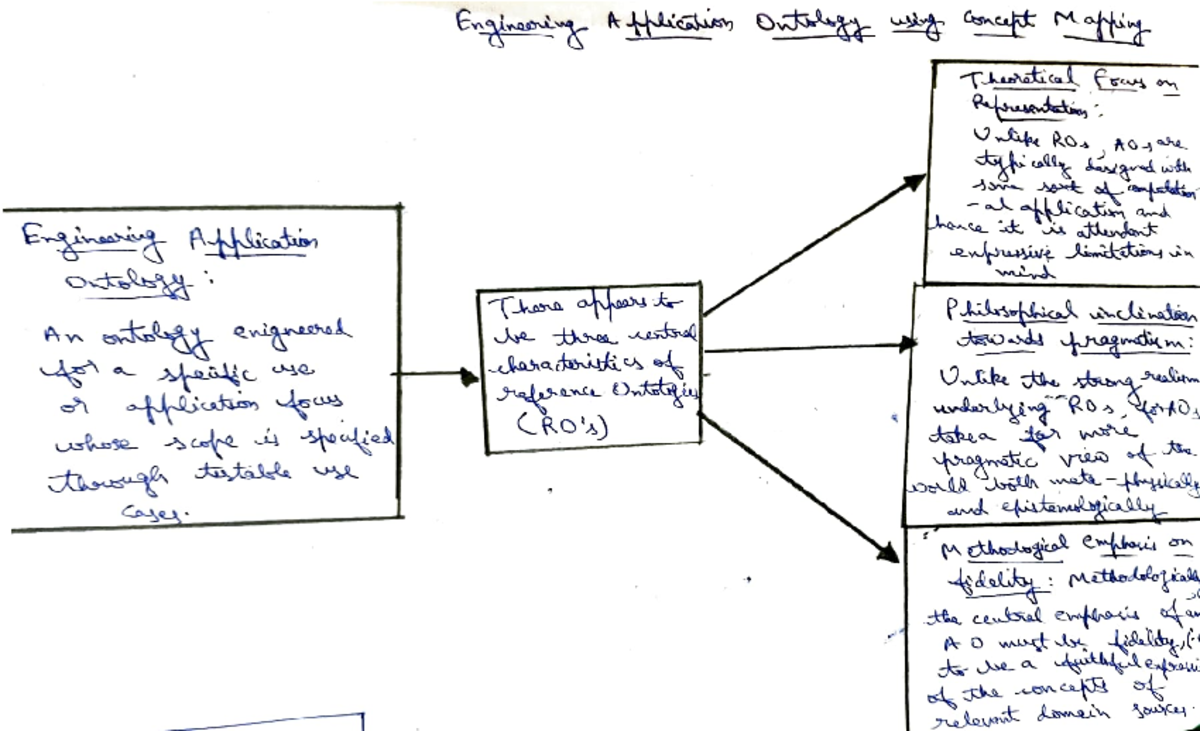 Engineering Application Ontology using Concept Mapping
Engineering Application
Ontology:
An ontology enigneered
for a specific use
or application focus
whose scope is specified
through testable use
cases.
There appears to
be three central
characteristics of
reference Ontologies
(RO's)
Theoretical Focus on
Representation:
Unlike ROs, AOs are
typically designed with
some sort of computation
-al application and
hence it is attendant
expressive limitations in
mind
Philosophical inclination
towards pragmatism:
Unlike the strong realism
underlying ROs, for AOs
take a far more
pragmatic view of the
world both meta-physically
and epistemologically
Methodological emphasis on
fidelity: Methodologically
the central emphasis of an
AO must be fidelity, (
to be a faithful expressi
of the concepts of
relevant domain sources.